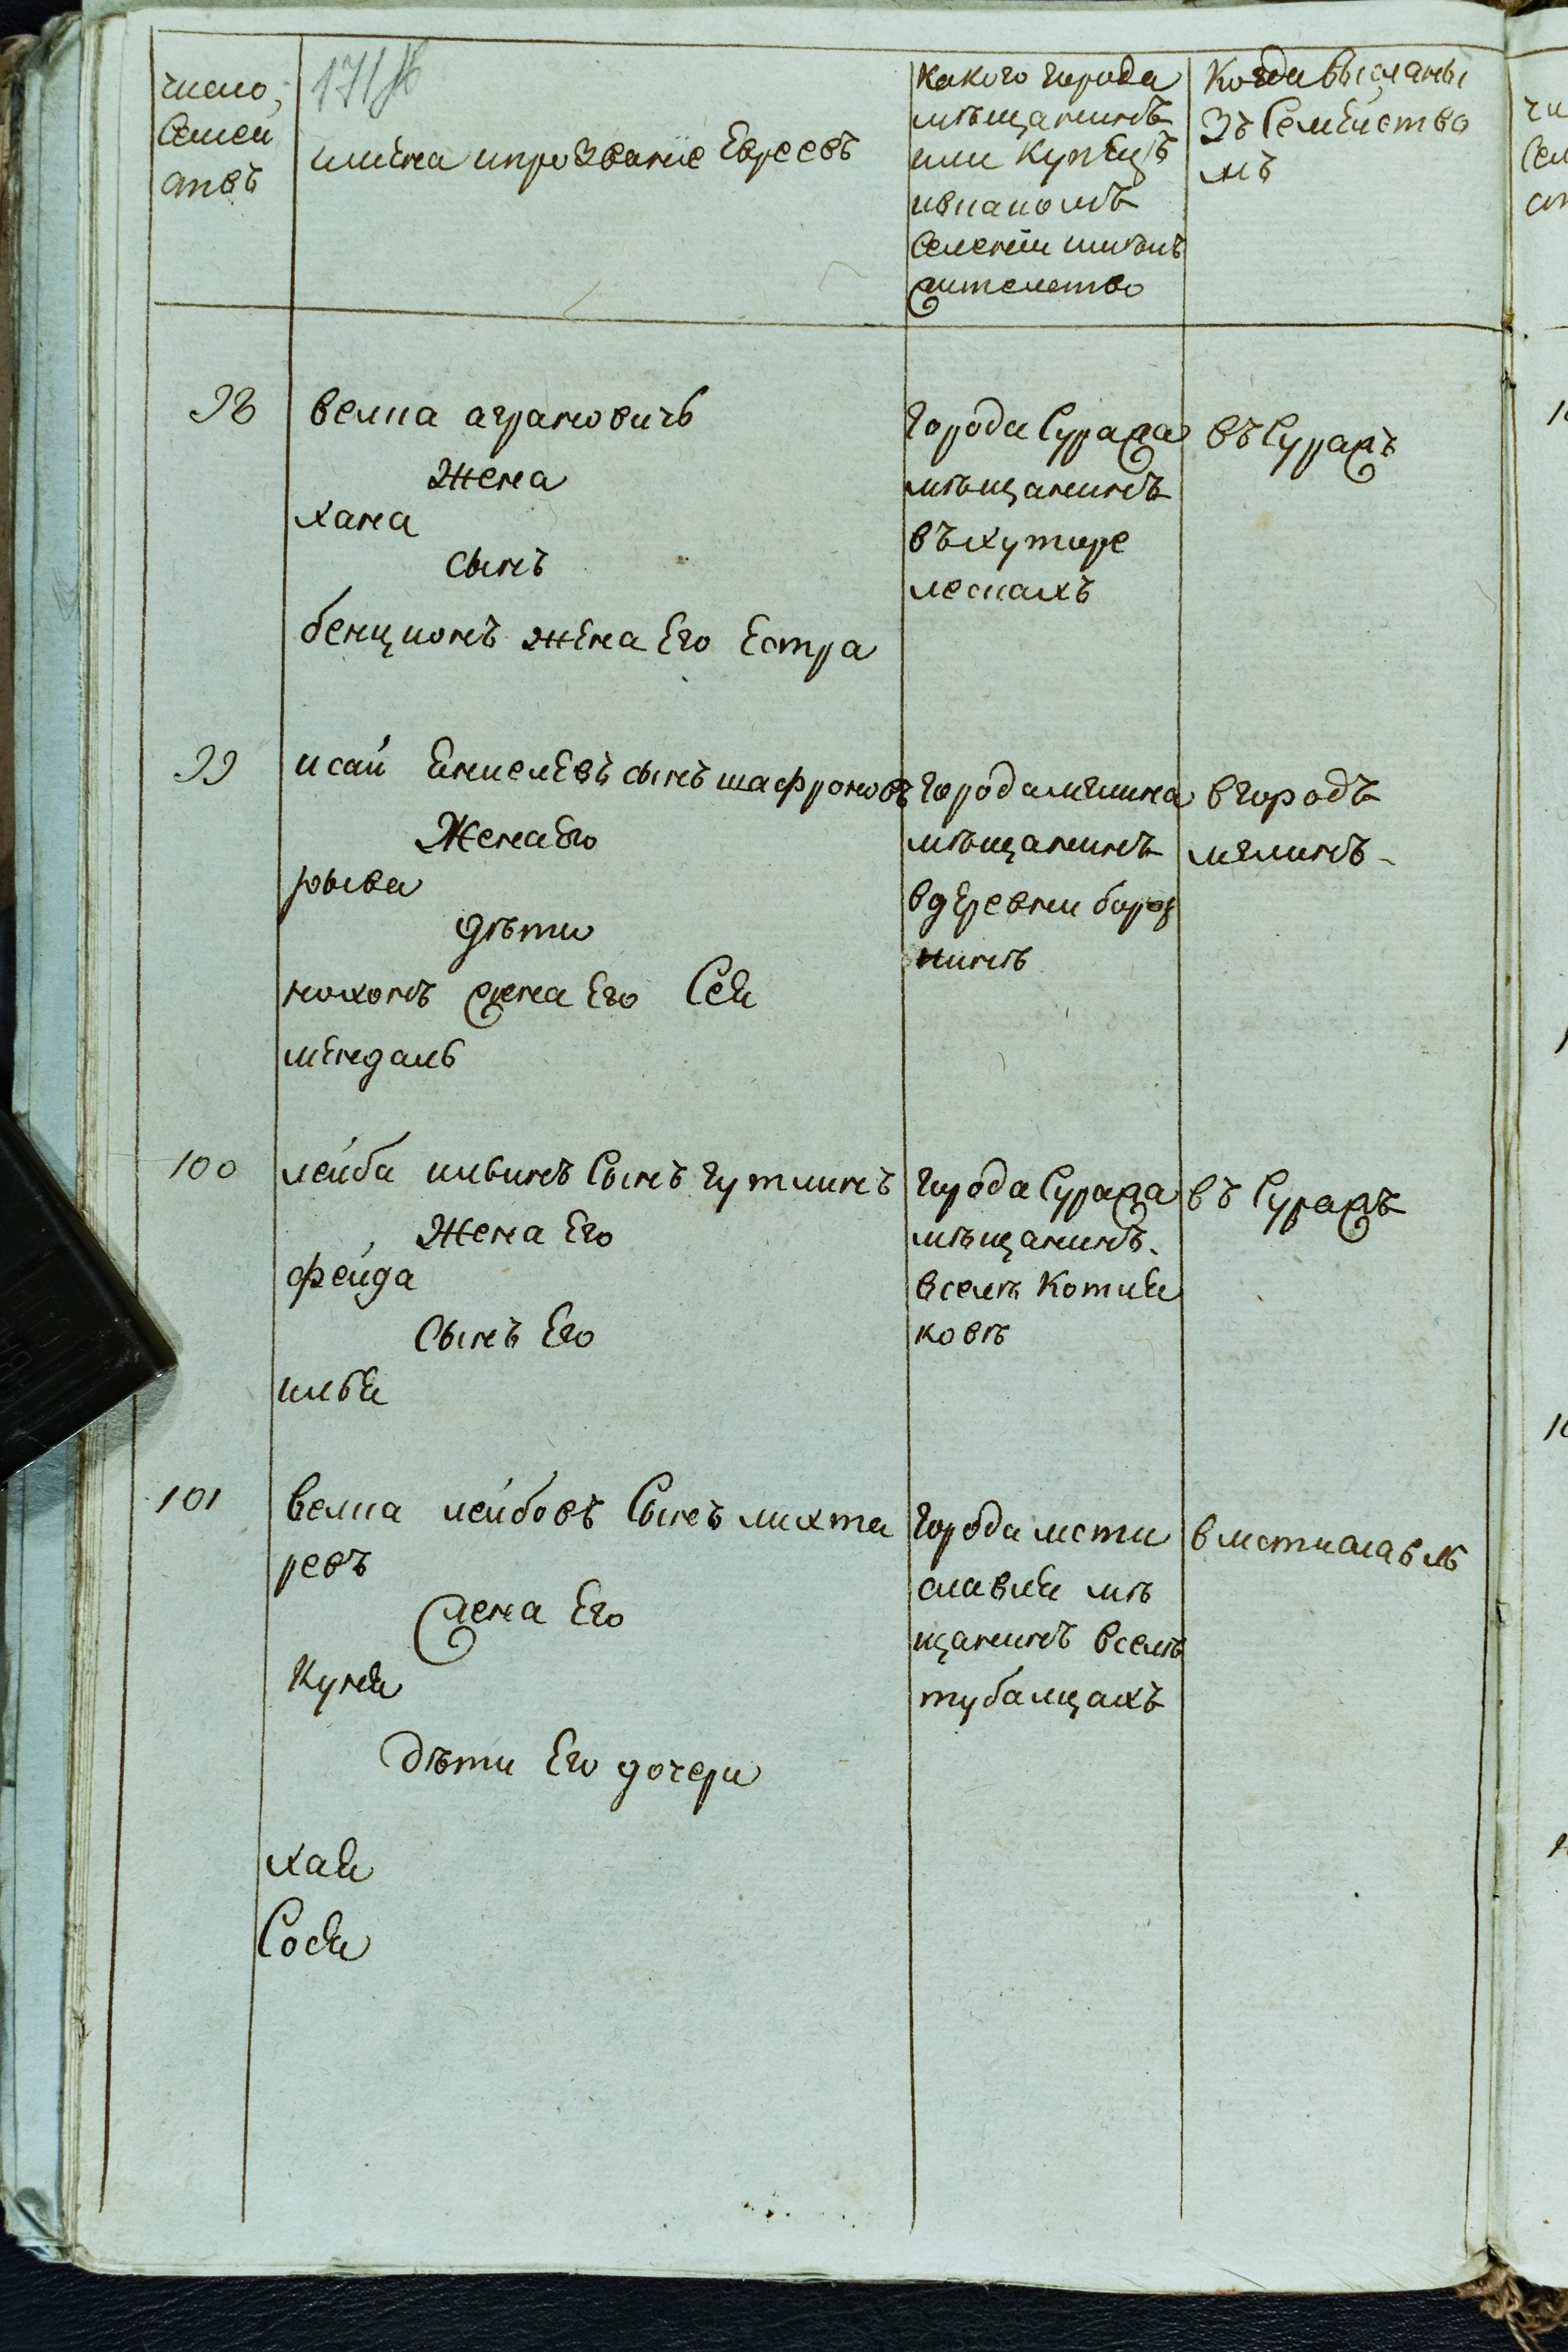 число
семей
ствъ
имена ипрозвание Евреевъ
какого города
мѣщанинъ
или Купецъ
ивкакомъ
селении имѣлъ
жителство
Когда высланы
зъ Семейство
мъ
98
велка аграновичь
Жена
хана
сынъ
бенционъ жена Его Естра
города Суража
мѣщанинъ
въ хуторе
лескахъ
въ Суражъ
99
исай сынъ шафроновъ
Жена Его
рыва
дѣти
нохомъ жена Его Сея
мендаль
города мглина
мѣщанинъ
вдеревни
вгородъ
мглинъ
100
лейба ильинъ Сынъ гутлинъ
Жена Его
фейда
Сынъ Его
илья
города Суража
мѣщанинъ
вселѣ Котля
ковѣ
въ Суражъ
101
велка лейбовъ Сынъ лихта
ревъ
жена Его
Куня
дѣти Его дочери
хая
Сося
города мсти
славля мѣ
щанинъ вселѣ
тубалцахъ
вмстиславль